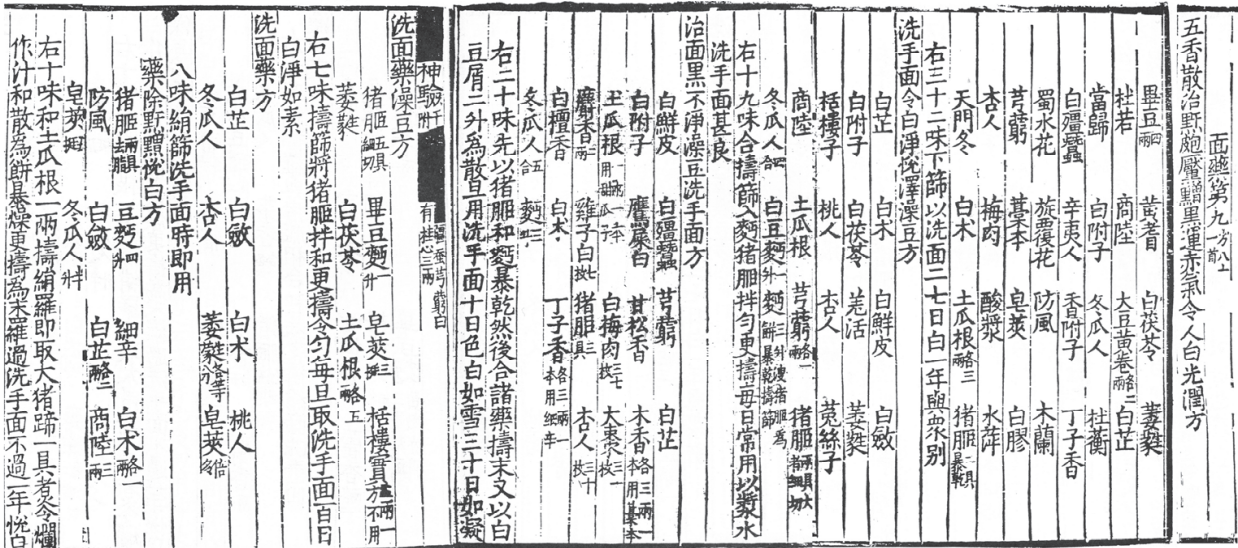 面藥第九方八十一首
五香散治䵟皰黶䵴黑運赤氣令人白光潤方
畢豆四兩 黃耆 白茯苓 萎蕤
杜若 商陸 大豆黃卷各二兩 白芷
當歸 白附子 冬瓜人 杜蘅
白殭蠶 辛夷人 香附子 丁子香
蜀水花 旋覆花 防風 木蘭
芎藭 藁本 皂莢 白膠
杏人 梅肉 酸漿 水萍
天門冬 白朮 土瓜根各三兩 猪胰二具暴乾
右三十二味下篩以洗面二七日白一年與衆別
洗手面令白淨悅澤澡豆方
白芷 白朮 白鮮皮 白斂
白附子 白茯苓 羌活 萎蕤
括樓子 桃人 杏人 菟絲子
商陸 土瓜根 芎藭各一兩 猪胰兩具大者細切
冬瓜人四合 白豆麪一升 麪三升溲猪胰爲餅暴乾擣篩
右十九味合擣篩入麪猪胰拌勻更擣每日常用以漿水
洗手面甚良
治面黑不淨澡豆洗手面方
白鮮皮 白殭蠶 芎藭 白芷
白附子 鷹屎白 甘松香 木香各三兩一本用藁本
土瓜根一兩一本用甜瓜子 白梅肉三七枚 大棗三十枚
麝香二兩 雞子白七枚 猪胰三具 杏人三十枚
白檀香 白朮 丁子香各三兩一本用細辛
冬瓜人五合 麪三升
右二十味先以猪胰和麪暴乾然後合諸藥擣末又以白
豆屑二升爲散旦用洗手面十日色白如雪三十日如凝
神驗
洗面藥澡豆方
猪胰五具細切 畢豆麪一升 皂莢三挺 括樓實三兩一方不用
萎蕤 白茯苓 土瓜根各五兩
右七味擣篩將猪胰拌和更擣令勻每旦取洗手面百日
白淨如素
洗面藥方
白芷 白斂 白朮 桃人
冬瓜人 杏人 萎蕤各等分 皂莢倍多
八味絹篩洗手面時即用
洗面藥除䵟䵴悅白方
猪胰兩具去脂 豆麪四升 細辛 白朮各一兩
防風 白斂 白芷各二兩 商陸三兩
皂莢五挺 冬瓜人半升
右十味和土瓜根一兩擣絹羅即取大猪蹄一具煮令爛
作汁和散爲餅暴燥更擣爲末羅過洗手面不過一年悅白